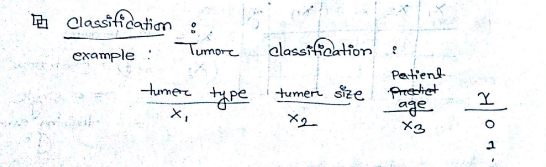 Classification :
example : Tumore classification :
tumer type tumer size Patient age Y
X₁ X₂ X₃ 0
1